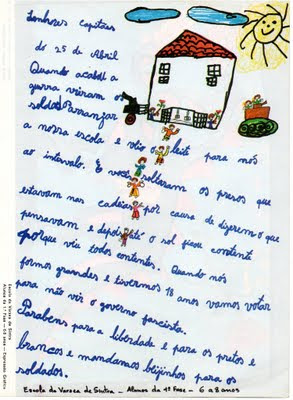 Senhores capitães
do 25 de Abril
Quando acabou a
guerra vieram os
soldados arranjar
a nossa escola e veio o leite para nós
ao intervalo. E vocês soltaram os presos que
estavam nas cadeias por causa de dizerem o que
pensavam e depois até o sol ficou contente
porque viu todos contentes. Quando nós
formos grandes e tivermos 18 anos vamos votar
para não vir o governo fascista.
Parabens para a liberdade e para os pretos e
brancos e mandamos beijinhos para os
soldados.
Escola da Varzea de Sintra - Alunos da 1ª Fase - 6 a 8 anos
Escola da Varzea de Sintra